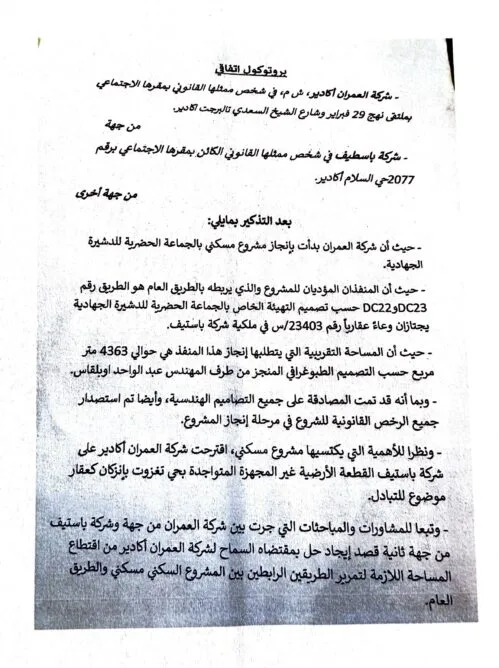 بروتوكول اتفاقي
- شركة العمران أكادير، ش م، في شخص ممثلها القانوني بمقرها الاجتماعي
بملتقى نهج 29 فبراير وشارع الشيخ السعدي تالبرجت أكادير.
من جهة
- شركة باسطيف في شخص ممثلها القانوني الكائن بمقرها الاجتماعي برقم
2077حي السلام أكادير.
من جهة أخرى
بعد التذكير بمايلي:
- حيث أن شركة العمران بدأت بإنجاز مشروع مسكني بالجماعة الحضرية للدشيرة
الجهادية.
- حيث أن المنفذان المؤديان للمشروع والذي يربطه بالطريق العام هو الطريق رقم
DC23وDC22 حسب تصميم التهيئة الخاص بالجماعة الحضرية للدشيرة الجهادية
يجتازان وعاءً عقارياً رقم 23403/س في ملكية شركة باستيف.
- حيث أن المساحة التقريبية التي يتطلبها إنجاز هذا المنفذ هي حوالي 4363 متر
مربع حسب التصميم الطبوغرافي المنجز من طرف المهندس عبد الواحد اوبلقاس.
- وبما أنه قد تمت المصادقة على جميع التصاميم الهندسية، وأيضا تم استصدار
جميع الرخص القانونية للشروع في مرحلة إنجاز المشروع.
- ونظرا للأهمية التي يكتسيها مشروع مسكني، اقترحت شركة العمران أكادير على
شركة باستيف القطعة الأرضية غير المجهزة المتواجدة بحي تغزوت بإنزكان كعقار
موضوع للتبادل.
- وتبعا للمشاورات والمباحثات التي جرت بين شركة العمران من جهة وشركة باستيف
من جهة ثانية قصد إيجاد حل بمقتضاه السماح لشركة العمران أكادير من اقتطاع
المساحة اللازمة لتمرير الطريقين الرابطين بين المشروع السكني مسكني والطريق
العام.